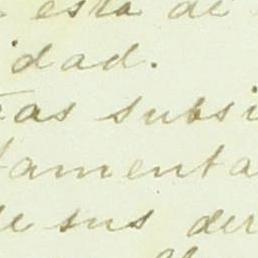 esta de
idad.
as subsi
tamenta
de sus der